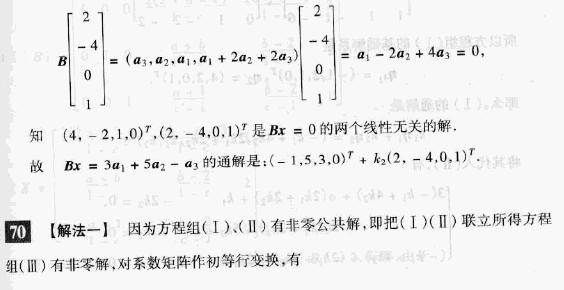 B [2 -4 0 1] = (a3, a2, a1, a1 + 2a2 + 2a3) [2 -4 0 1] = a1 - 2a2 + 4a3 = 0,
知 (4, -2,1,0)^T,(2, -4,0,1)^T 是 Bx = 0 的两个线性无关的解.
故 Bx = 3a1 + 5a2 - a3 的通解是:(-1,5,3,0)^T + k2(2, -4,0,1)^T.
70 【解法一】 因为方程组(Ⅰ)、(Ⅱ)有非零公共解,即把(Ⅰ)(Ⅱ)联立所得方程
组(Ⅲ)有非零解,对系数矩阵作初等行变换,有